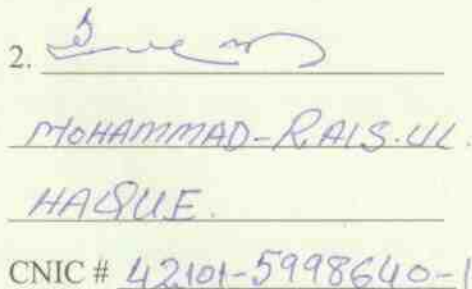 2.
MOHAMMAD-RAIS.UL.
HAQUE.
CNIC # 42101-5998640-1